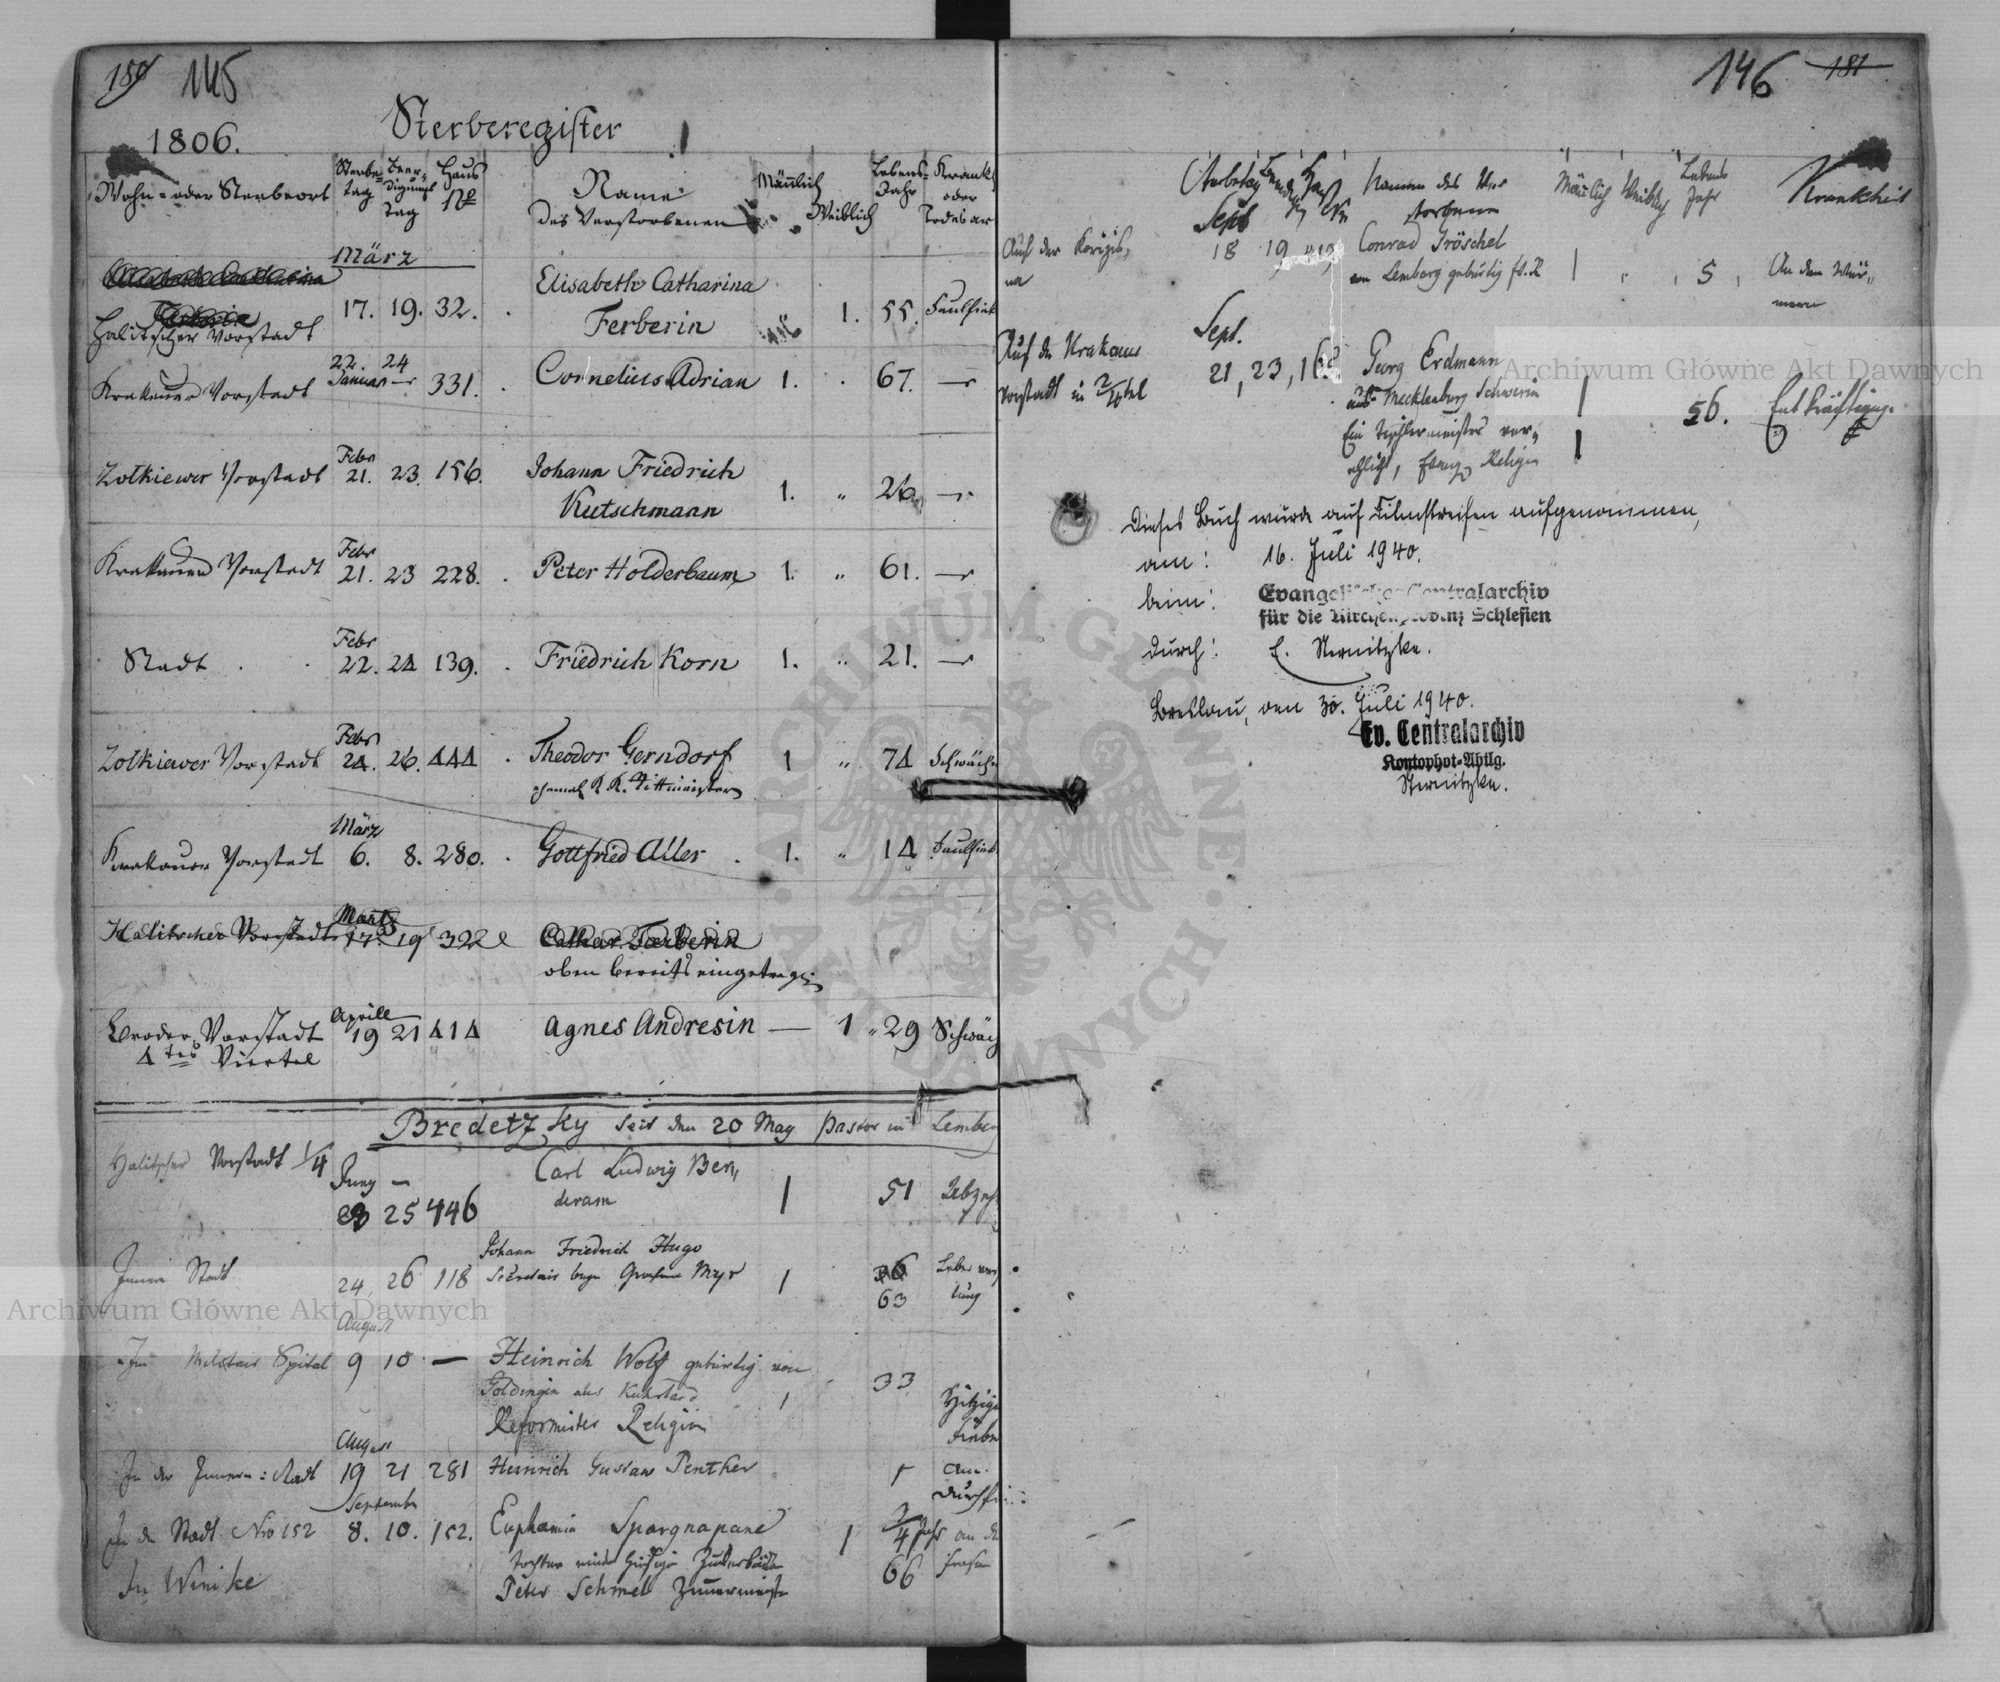 145
1806.
Sterberegister
Wohn- oder Sterbeort
Sterbe-tag
Beer-digungs Tag
Haus No
Name
des Verstorbenen
Männlich
Weiblich
Lebens-Jahr
Krank
oder
Todesar
März
Halitscher Vorstadt 17. 19. 32. Elisabeth Catharina
Ferberin 1. 55. Faulfieb
Krakauer Vorstadt 22. 24 Januar 331. Cornelius Adrian 1. 67.
Zolkiewer Vorstadt Febr 21. 23. 156. Johann Friedrich
Kutschmann 1. " 26
Krakauer Vorstadt Febr 21. 23 228. Peter Holderbaum 1. " 61.
Stadt Febr 22. 24 139. Friedrich Korn 1. " 21.
Zolkiewer Vorstadt Febr 24. 26. 444. Theodor Gerndorf 1 " 74 Schwäch
ehemal K. K. Rittmeister
Krakauer Vorstadt März 6. 8. 280. Gottfried Aller 1. " 14 Faulfieb
Halitscher Vorstadt März 17. 19 322 Cathar. Ferberin
oben bereits eingetragen
Broder Vorstadt Aprill 19 21 414 Agnes Andresin — 1 " 29 Schwäch
4tes Viertel
Bredetzky seit den 20 May Pastor in Lemberg
Halitscher Vorstadt 1/4 Juny 25 446 Carl Ludwig Ben,
deram 1 51
Innere Stadt 24, 26 118 Johann Friedrich Hugo
Secretair 1 63
August
Im Militair Spital 9 10 — Heinrich Wolf gebürtig von
Goldingen aus Kuhrland 1 33 Hitzige
Reformirter Religion Fieber
August
In der Innern Stadt 19 21 281 Heinrich Gustaw Penther 1 am
Durchf
September
In der Stadt Nro 152 8. 10. 152. Euphamia Spargnapane 1 3/4 Jahr an de
Tochter eines Zuckerbäcker
In Winike Peter Schmel Zimmermeister 66
146
181
Sterbetag
Haus
Namen des Ver
storbenen
Mänlich
Weiblich
Lebens
Jahr
Krankheit
Auf der Sept 18 19 Conrad Gröschel
von Lemberg gebürtig 1 " 5 An den Wür-
mern
Auf der Krakauer Sept. 21, 23, Georg Erdmann
Vorstadt in 2/4tel aus Mecklenburg Schwerin 1 56. Entkräftigung
Ein Tischlermeister ver-
ehligt, Evang. Religion 1
Dieses Buch wurde auf Filmstreifen aufgenommen,
am: 16. Juli 1940.
beim: Evangelisches Centralarchiv
für die Kirchenprovinz Schlesien
durch: E. Sternitzke.
Breslau, den 30. Juli 1940.
Ev. Centralarchiv
Kontophot-Abtlg.
Sternitzke.
Archiwum Główne Akt Dawnych
Archiwum Główne Akt Dawnych
ARCHIWUM GŁÓWNE AKT DAWNYCH